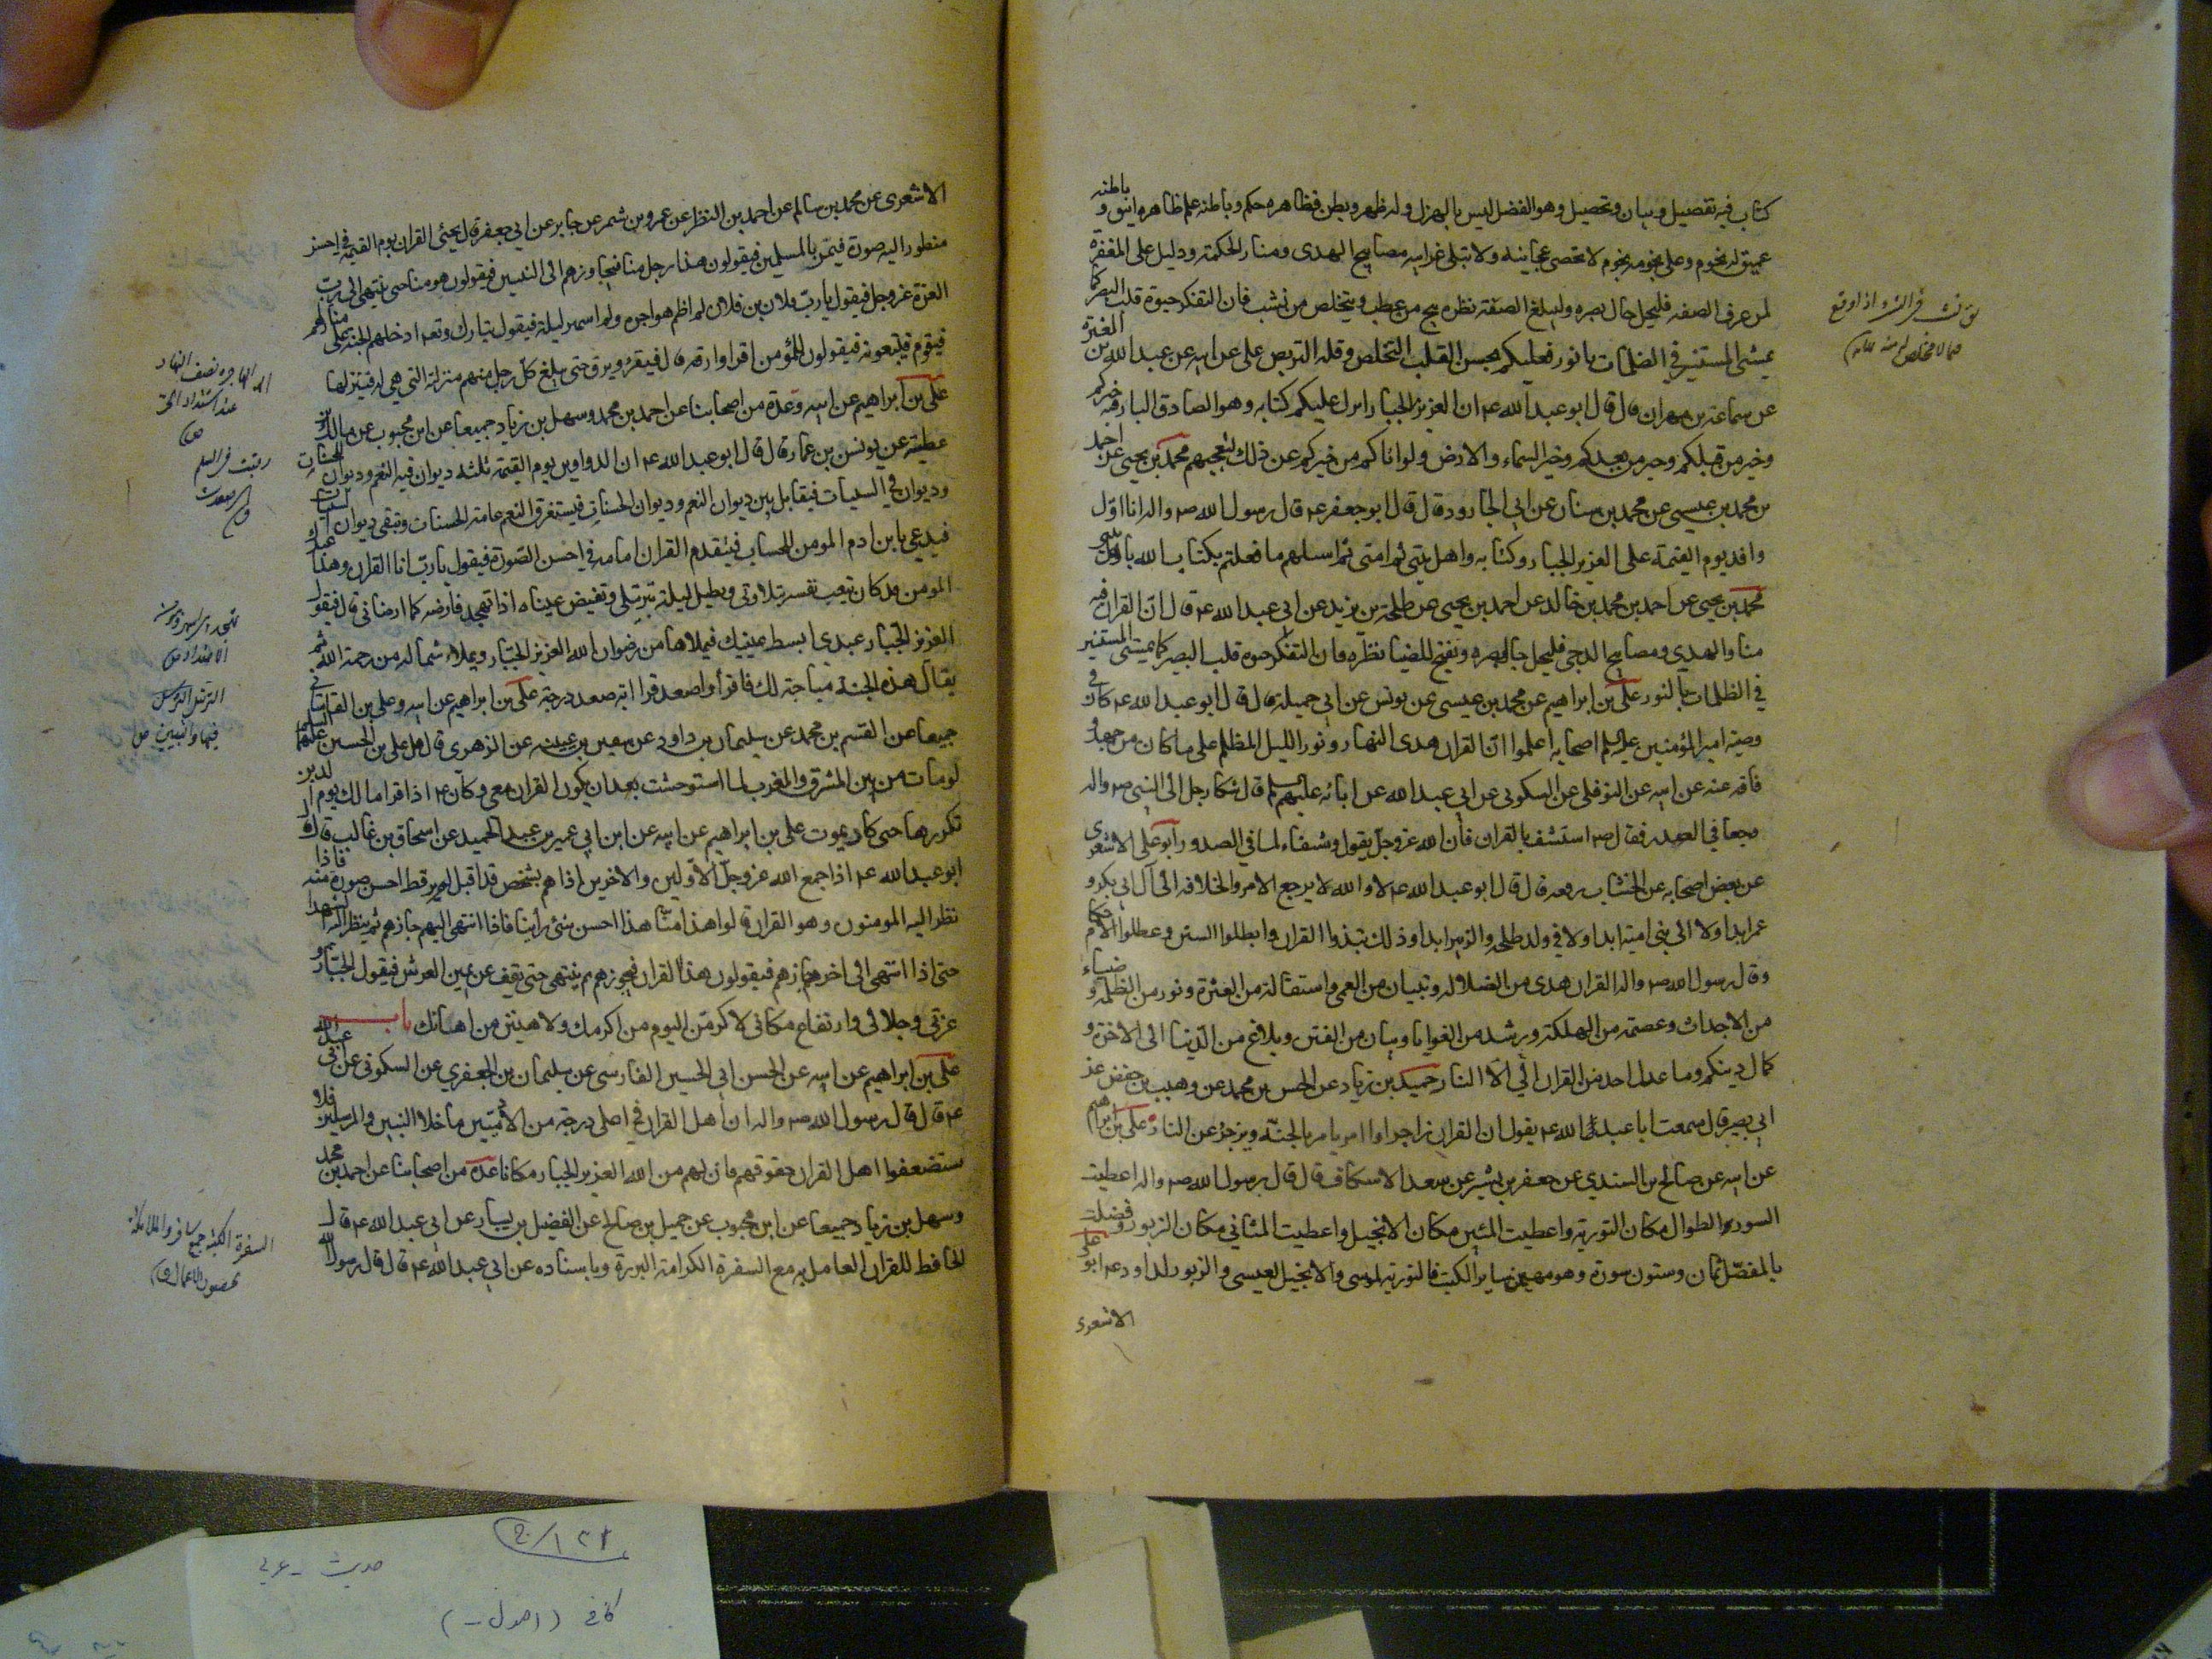 كتاب فيه تفصيل وبيان وتحصيل وهو الفضل ليس بالهزل وله ظهر وبطن فظاهره حكم وباطنه علم ظاهره انيق وباطنه
عميق له نجوم وعلى نجومه نجوم لا تحصى عجائبه ولا تبلى غرائبه مصابيح الهدى ومنار الحكمة ودليل على المغفرة
لمن عرف الصفة فليجل جال بصره وليبلغ الصفة نظره ينج من عطب ويتخلص من نشب فان التفكر حيوة قلب البصير كما
يمشى المستنير في الظلمات بالنور فعليكم بحسن التخلص وقلة التربص علي عن ابيه عن عبد الله بن المغيرة
عن سماعة بن مهران قال قال ابو عبد الله ع ان العزيز الجبار انزل عليكم كتابه وهو الصادق البار فيه خبركم
وخبر من قبلكم وخبر من بعدكم وخبر السماء والارض ولو اتاكم من خبركم عن ذلك لتعجبتم محمد بن يحيى عن احمد
بن محمد بن عيسى عن محمد بن سنان عن ابي الجارود قال قال ابو جعفر ع قال رسول الله ص واله انا اول
وافد يوم القيمة على العزيز الجبار وكتابه واهل بيتي ثم امتي ثم اسئلهم ما فعلتم بكتاب الله
محمد بن يحيى عن احمد بن محمد بن خالد عن احمد بن يحيى عن طلحة بن يزيد عن ابي عبد الله ع قال ان القران فيه
منار الهدي ومصابيح الدجى فليجل جال بصره ويفتح للضيا نظره فان التفكر حيوة قلب البصير كما يمشى المستنير
في الظلمات بالنور علي بن ابراهيم عن محمد بن عيسى عن يونس عن ابي جميلة قال قال ابو عبد الله ع كان في
وصية امير المؤمنين عليه السلم اصحابه اعلموا ان القران هدى النهار ونور الليل المظلم على ما كان من جهد و
فاقة عنه عن ابيه عن النوفلي عن السكوني عن ابي عبد الله عن ابائه عليهم السلم قال شكا رجل الى النبي ص واله
وجعا في الصدر فقال ص استشف بالقران فان الله عز وجل يقول وشفاء لما في الصدور ابو علي الاشعري
عن بعض اصحابه عن الخشاب رفعه قال قال ابو عبد الله ع لا والله لا يرجع الامر والخلافة الى آل ابي بكر و
عمر ابدا ولا الى بني امية ابدا ولا في ولد طلحة والزبير ابدا وذلك نبذوا القران وابطلوا السنن وعطلوا الاحكام
وقال رسول الله ص واله القران هدى من الضلالة وتبيان من العمى واستقالة من العثرة ونور من الظلمة وضياء
من الاحداث وعصمة من الهلكة ورشد من الغواية وبيان من الفتن وبلاغ من الدنيا الى الاخرة و
كمال دينكم وما عدل احد من القران الا الى النار حميد بن زياد عن الحسن بن محمد عن وهيب بن حفص عن
ابي بصير قال سمعت ابا عبد الله ع يقول ان القران زاجر وامر يامر بالجنة ويزجر عن النار علي بن ابراهيم
عن ابيه عن صالح بن السندي عن جعفر بن بشير عن سعد الاسكاف قال قال رسول الله ص واله اعطيت
السور الطوال مكان التورية واعطيت المئين مكان الانجيل واعطيت المثاني مكان الزبور وفضلت
بالمفصل ثمان وستون سورة وهو مهيمن سائر الكتب فالتورية لموسى والانجيل لعيسى والزبور لداود ع ابو علي
الاشعرى
الاشعرى عن محمد بن سالم عن احمد بن النضر عن عمرو بن شمر عن جابر عن ابي جعفر قال يجئ القران يوم القيمة في احسن
منظور اليه صورة فيمر بالمسلمين فيقولون هذا رجل منا فيجاوزهم الى النبيين فيقولون هو منا حتى ينتهي الى رب
العزة عز وجل فيقول يا رب فلان بن فلان لم اظم هواجره ولم اسهر ليلة فيقول تبارك وتعه ادخلهم الجنة على منازلهم
فيقوم فيتبعونه فيقولون للمؤمن اقرا وارقه قال فيقرء ويرق حتى يبلغ كل رجل منهم منزلته التي هي له فينزلها
علي بن ابراهيم عن ابيه وعدة من اصحابنا عن احمد بن محمد وسهل بن زياد جميعا عن ابن محبوب عن مالك بن
عطية عن يونس بن عمار قال قال ابو عبد الله ع ان الدواوين يوم القيمة ثلثة ديوان فيه النعم وديوان الحسنات
وديوان في السيئات فيقابل بين ديوان النعم وديوان الحسنات فيستغرق النعم عامة الحسنات وتبقى ديوان السيئات
فيدعى بابن ادم المومن للحساب فيتقدم القران امامه في احسن الصورة فيقول يا رب انا القران وهذا عبدك
المومن قد كان يتعب نفسه بتلاوتي ويطيل ليلة بترتيلي وتفيض عيناه اذا تهجد فارضه كما ارضاني قال فيقول
العزيز الجبار عبدي ابسط يمينك فيملاها من رضوان الله العزيز الجبار ويملاء شماله من رحمة الله ثم
يقال هذه الجنة مباحة لك فاقرأ واصعد فاذا قرا اية صعد درجة علي بن ابراهيم عن ابيه وعلي بن القاساني
جميعا عن القسم بن محمد عن سليمان بن داود عن سفين بن عيينه عن الزهرى قال قال علي بن الحسين عليهما السلم
لو مات من بين المشرق والمغرب لما استوحشت بعد ان يكون القران معي وكان ع اذا قرا مالك يوم الدين
تكررها حتى كاد يموت علي بن ابراهيم عن ابيه عن ابن ابي عمير بن عبد الحميد عن اسحاق بن غالب قال قال
ابو عبد الله ع اذا جمع الله عز وجل الاولين والاخرين اذا هم بشخص قد اقبل لم ير قط احسن صورة منه فاذا
نظر اليه المومنون وهو القران قالوا هذا منا هذا احسن شئ رأينا فاذا انتهى اليهم جازهم ثم ينظر اليه الشهدا
حتى اذا انتهى الى اخرهم جازهم فيقولون هذا القران فيجوزهم ثم ينتهى حتى يقف عن يمين العرش فيقول الجبار و
عزتي وجلالي وارتفاع مكاني لاكرمن اليوم من اكرمك ولاهينن من اهانك باب
علي بن ابراهيم عن ابيه عن الحسن ابي الحسين الفارسي عن سليمان بن الجعفري عن السكوني عن ابي عبد الله
ع قال قال رسول الله ص واله ان اهل القران في اعلى درجة من الادميين ما خلا النبيين والمرسلين فلا
ستضعفوا اهل القران حقوقهم فان لهم من الله العزيز الجبار مكانا عدة من اصحابنا عن احمد بن محمد
وسهل بن زياد جميعا عن ابن محبوب عن جميل بن صالح عن الفضيل بن يسار عن ابي عبد الله ع قال
الحافظ للقران العامل به مع السفرة الكرامة البررة وباسناده عن ابي عبد الله ع قال قال رسول الله
الهاجره نصف النهار
عند اشتداد الحر
السفرة الكتبة جمع سافر والملائكة
يحصون الاعمال ق
١٢١/ج
حديث - عربي
كافى (اصول -)